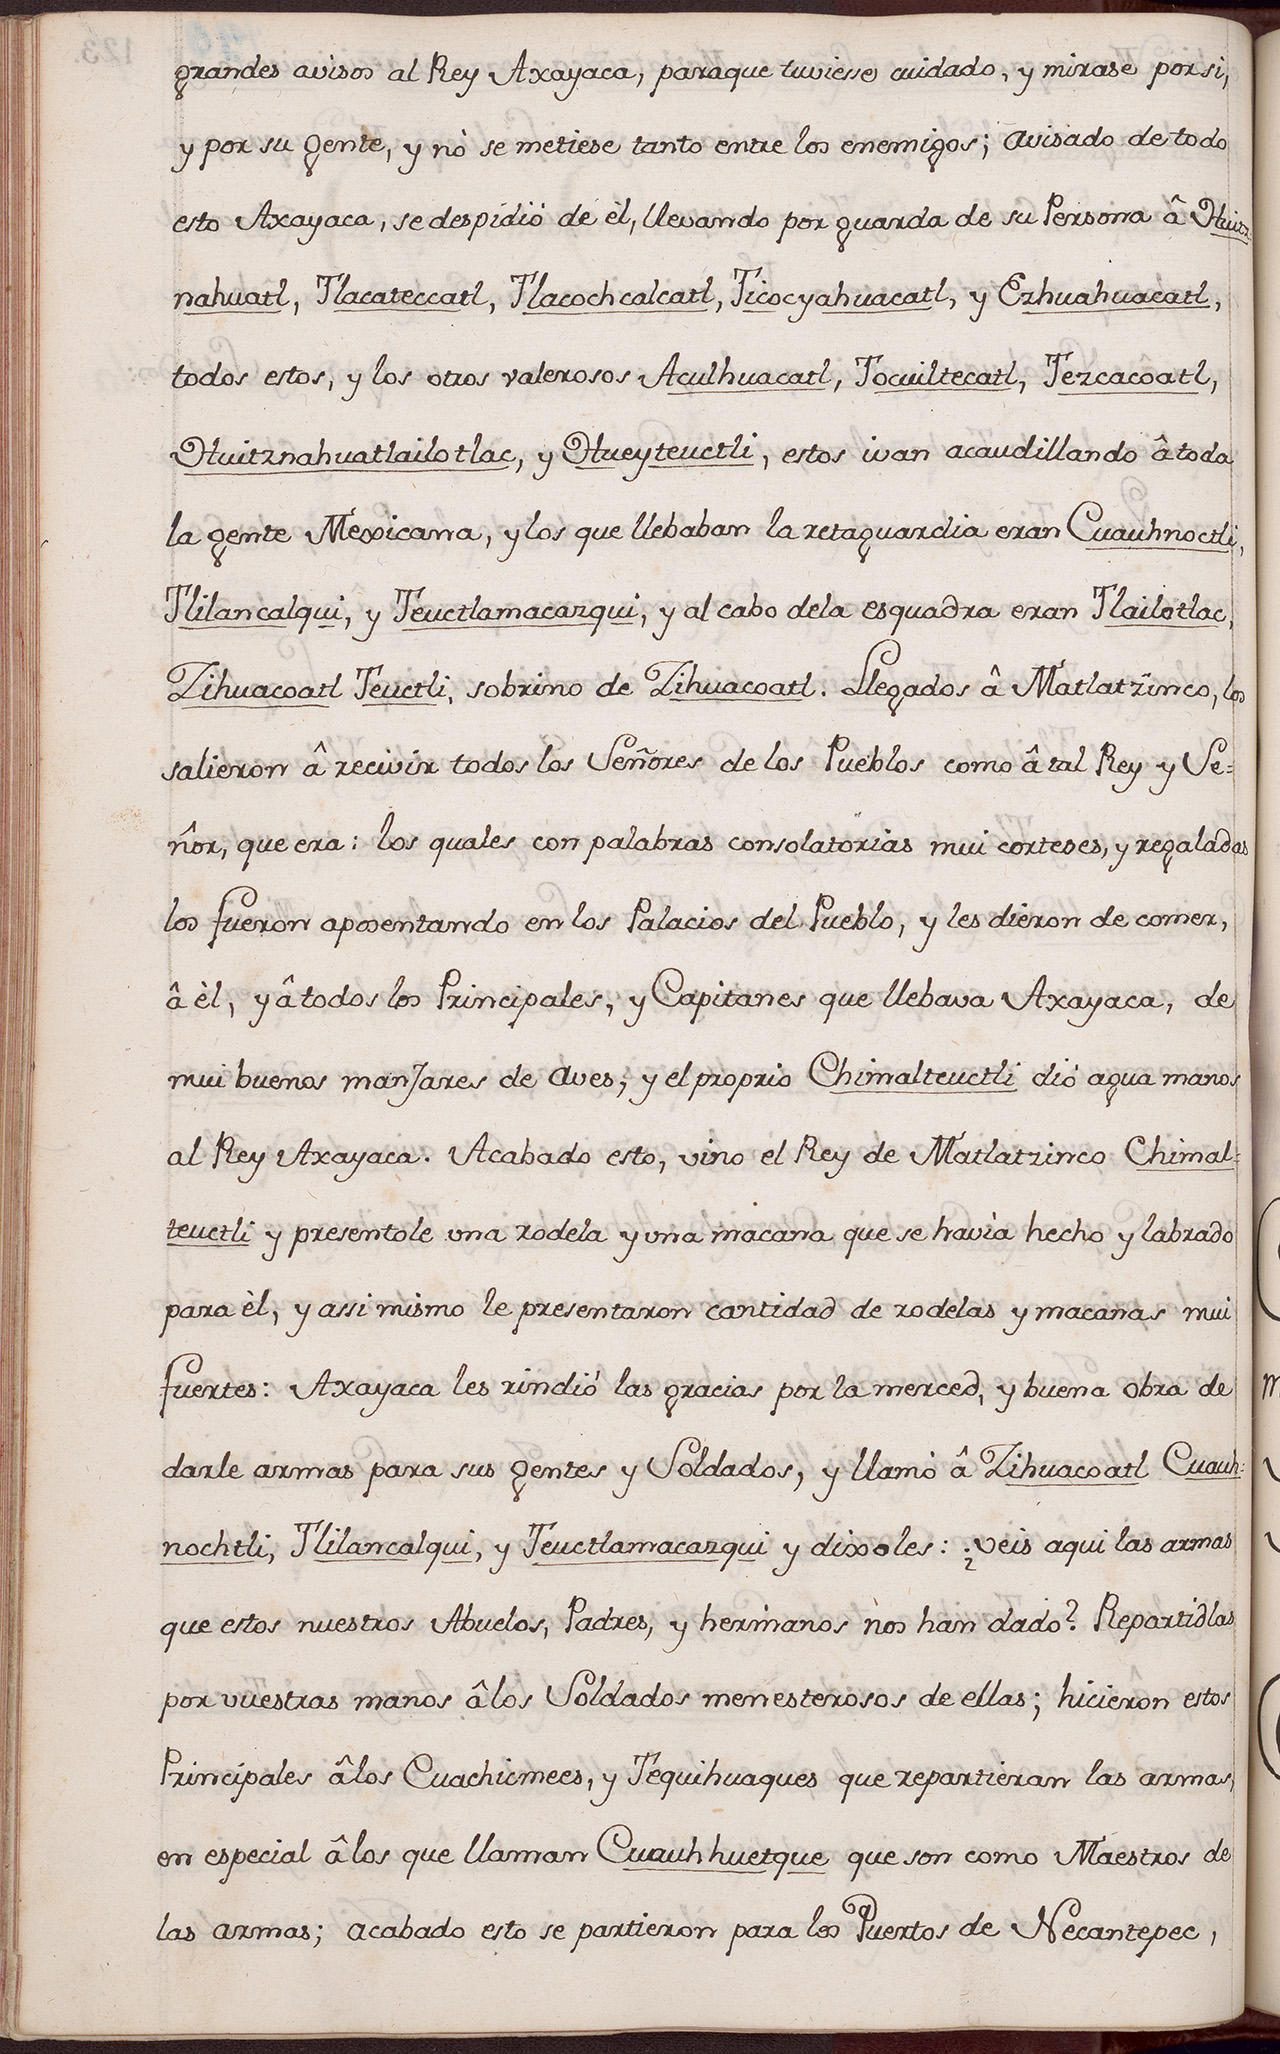 grandes avisos al Rey Axayaca, paraque tuviesse cuidado, y mirase por si,
y por su gente, y nò se metiese tanto entre los enemigos; avisado de todo
esto Axayaca, se despidió de èl, llevando por guarda de su Persona â Huitz=
nahuatl, Tlacateccatl, Tlacochcalcatl, Ticocyahuacatl, y Ezhuahuacatl,
todos estos, y los otros valerosos Aculhuacatl, Tocuiltecatl, Tezcacôatl,
Huitznahuatlailotlac, y Hueyteuctli, estos ivan acaudillando â toda
la gente Mexicana, y los que llebaban la retaguardia eran Cuauhnoctli,
Tlilancalqui, y Teuctlamacazqui, y al cabo dela esquadra eran Tlailotlac,
Zihuacoatl Teuctli, sobrino de Zihuacoatl. Llegados â Matlatzinco, los
salieron â recivir todos los Señores de los Pueblos como â tal Rey y Se=
ñor, que era: los quales con palabras consolatorias mui corteses, y regaladas
los fueron aposentando en los Palacios del Pueblo, y les dieron de comer,
â èl, y â todos los Principales, y Capitanes que llebava Axayaca, de
mui buenos manjares de aves; y el proprio Chimalteuctli dió agua manos
al Rey Axayaca. Acabado esto, vino el Rey de Matlatzinco Chimal=
teuctli y presentole una rodela y una macana que se havia hecho y labrado
para èl, y assi mismo le presentaron cantidad de rodelas y macanas mui
fuertes: Axayaca les rindió las gracias por la merced, y buena obra de
darle armas para sus gentes y Soldados, y llamò â Zihuacoatl Cuauh=
nochtli, Tlilancalqui, y Teuctlamacazqui y dixoles: ¿veis aqui las armas
que estos nuestros Abuelos, Padres, y hermanos nos han dado? Repartidlas
por vuestras manos â los Soldados menesterosos de ellas; hicieron estos
Principales â los Cuachicmees, y Tequihuaques que repartieran las armas,
en especial â los que llaman Cuauhhuetque que son como Maestros de
las armas; acabado esto se partieron para los Puertos de Necantepec,